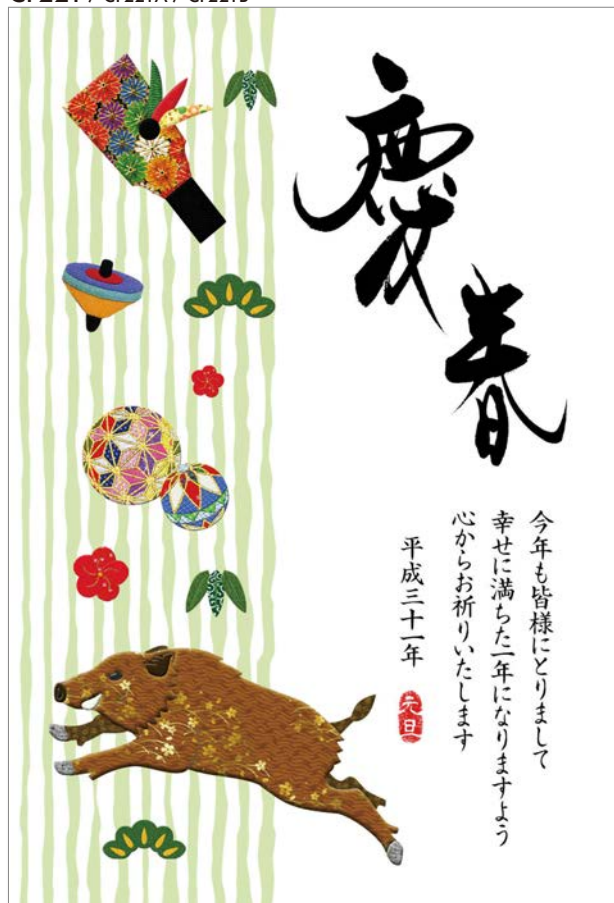 慶春
今年も皆様にとりまして
幸せに満ちた一年になりますよう
心からお祈りいたします
平成三十一年
元旦